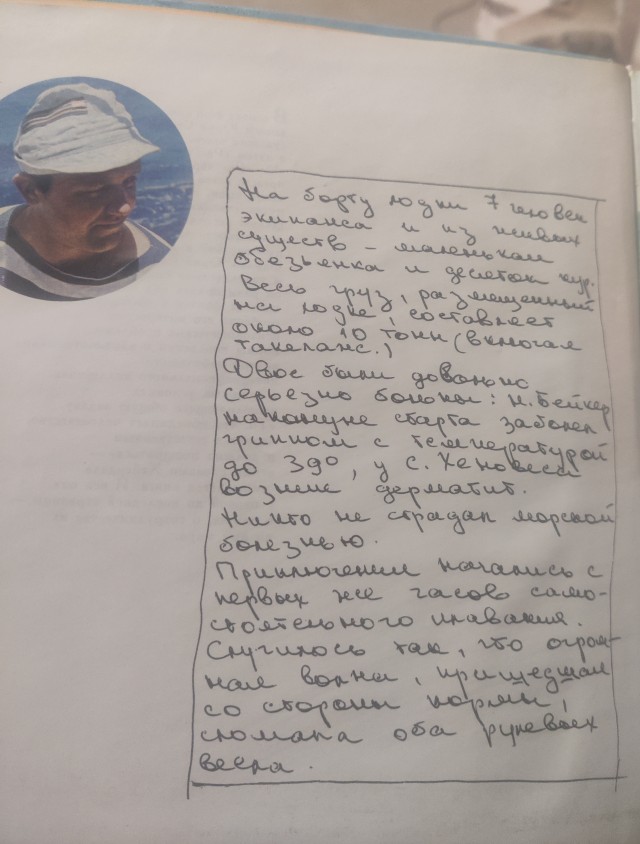 На борту лодки 7 человек
экипажа и из живых
существ - маленькая
обезьянка и десяток кур.
Весь груз, размещенный
на лодке, составляет
около 10 тонн (включая
такелаж.)
Двое были довольно
серьезно больны: Н. Бейкер
накануне старта заболел
гриппом с температурой
до 39°, у С. Хеновеса
возник дерматит.
Никто не страдал морской
болезнью.
Приключения начались с
первых же часов само-
стоятельного плавания.
Случилось так, что огром-
ная волна, пришедшая
со стороны кормы,
сломала оба рулевых
весла.